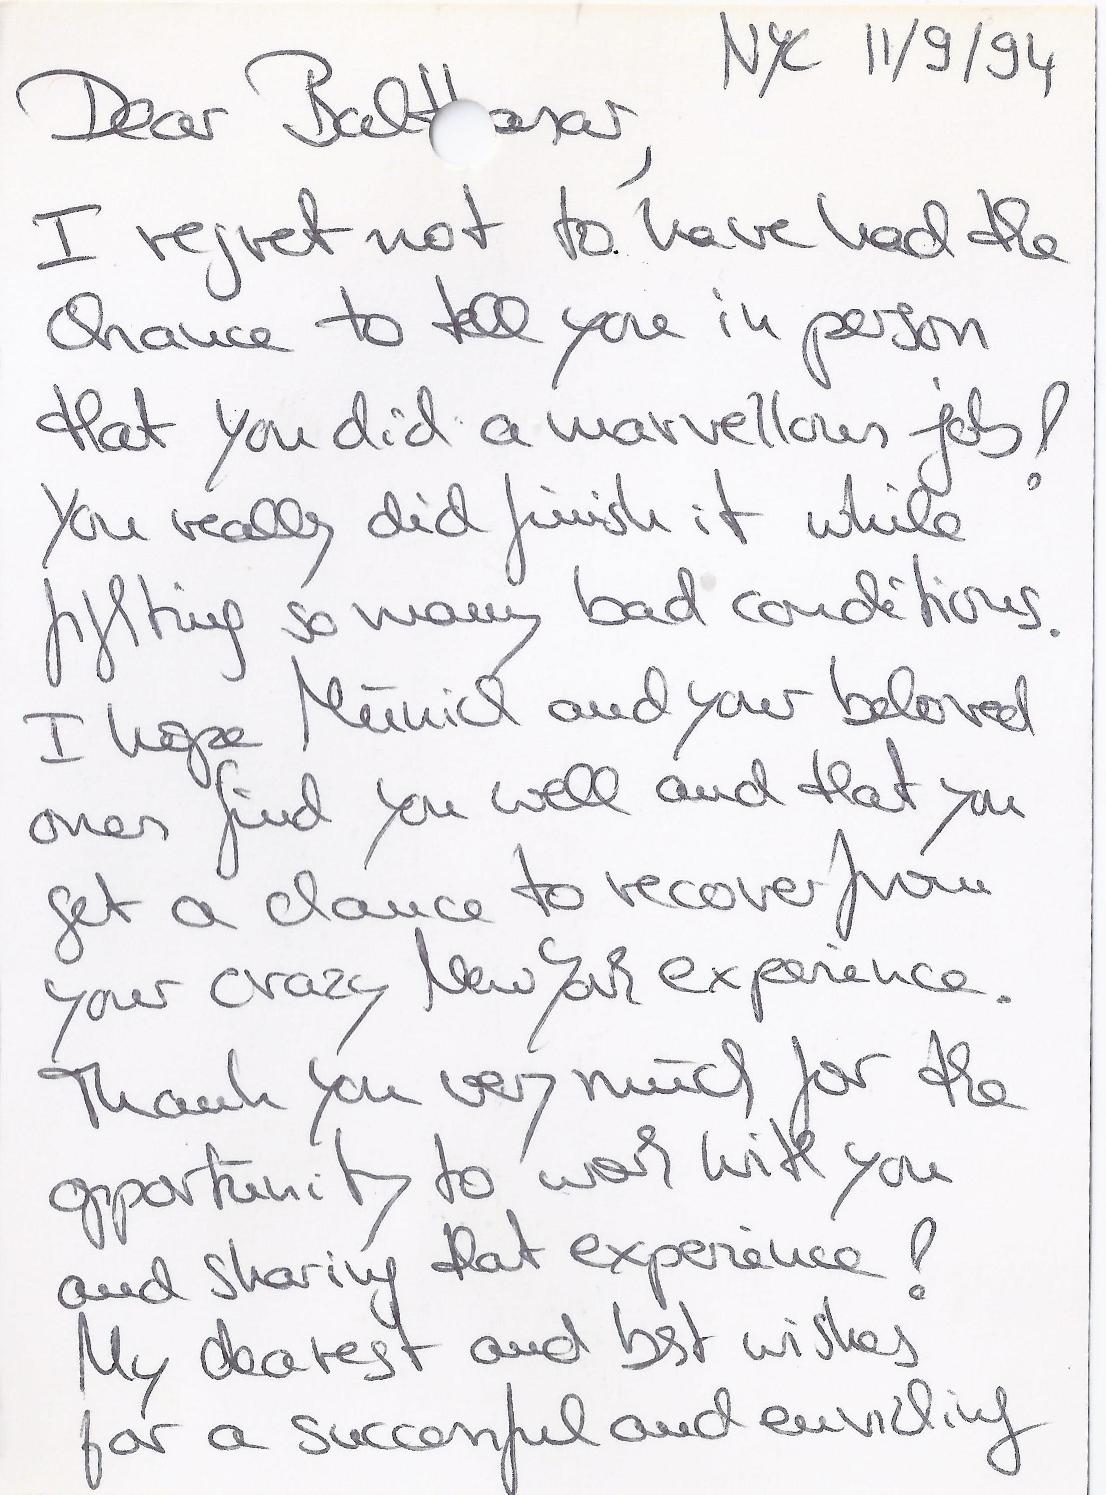 NYC 11/9/94
Dear Balthasar,
I regret not to have had the
chance to tell you in person
that you did a marvellous job!
You really did finish it while
fighting so many bad conditions.
I hope Münich and your beloved
ones find you well and that you
get a chance to recover from
your crazy New York experience.
Thank you very much for the
opportunity to work with you
and sharing that experience!
My dearest and best wishes
for a successful and enriching